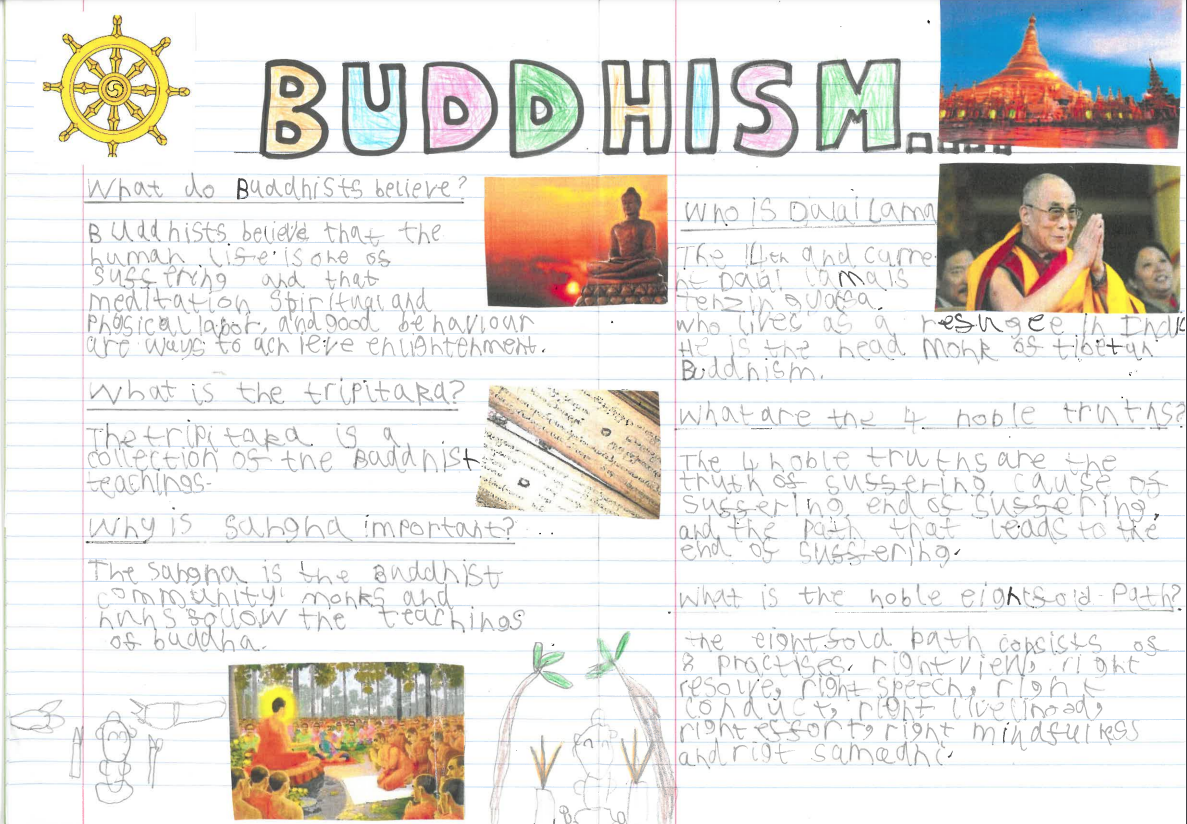 BUDDHISM....
What do Buddhists believe?
Buddhists believe that the
human life is one of
suffering and that
meditation, spiritual and
physical labor, and good behaviour
are ways to achieve enlightenment.
What is the tripitaka?
The tripitaka is a
collection of the Buddhist
teachings.
Why is sangha important?
The Sangha is the Buddhist
community monks and
nuns follow the teachings
of buddha.
Who is Dalai Lama
The 14th and curre
nt Dalai lama is
tenzin gyatsa.
who lives as a refugee in India
He is the head monk of tibetan
Buddhism.
What are the 4 noble truths?
The 4 noble truths are the
truth of suffering, cause of
suffering, end of suffering,
and the path that leads to the
end of suffering.
What is the noble eightfold Path?
the eightfold path consists of
8 practises. right view, right
resolve, right speech, right
conduct, right livelihood,
right effort, right mindfulness
and rigt samadhi.